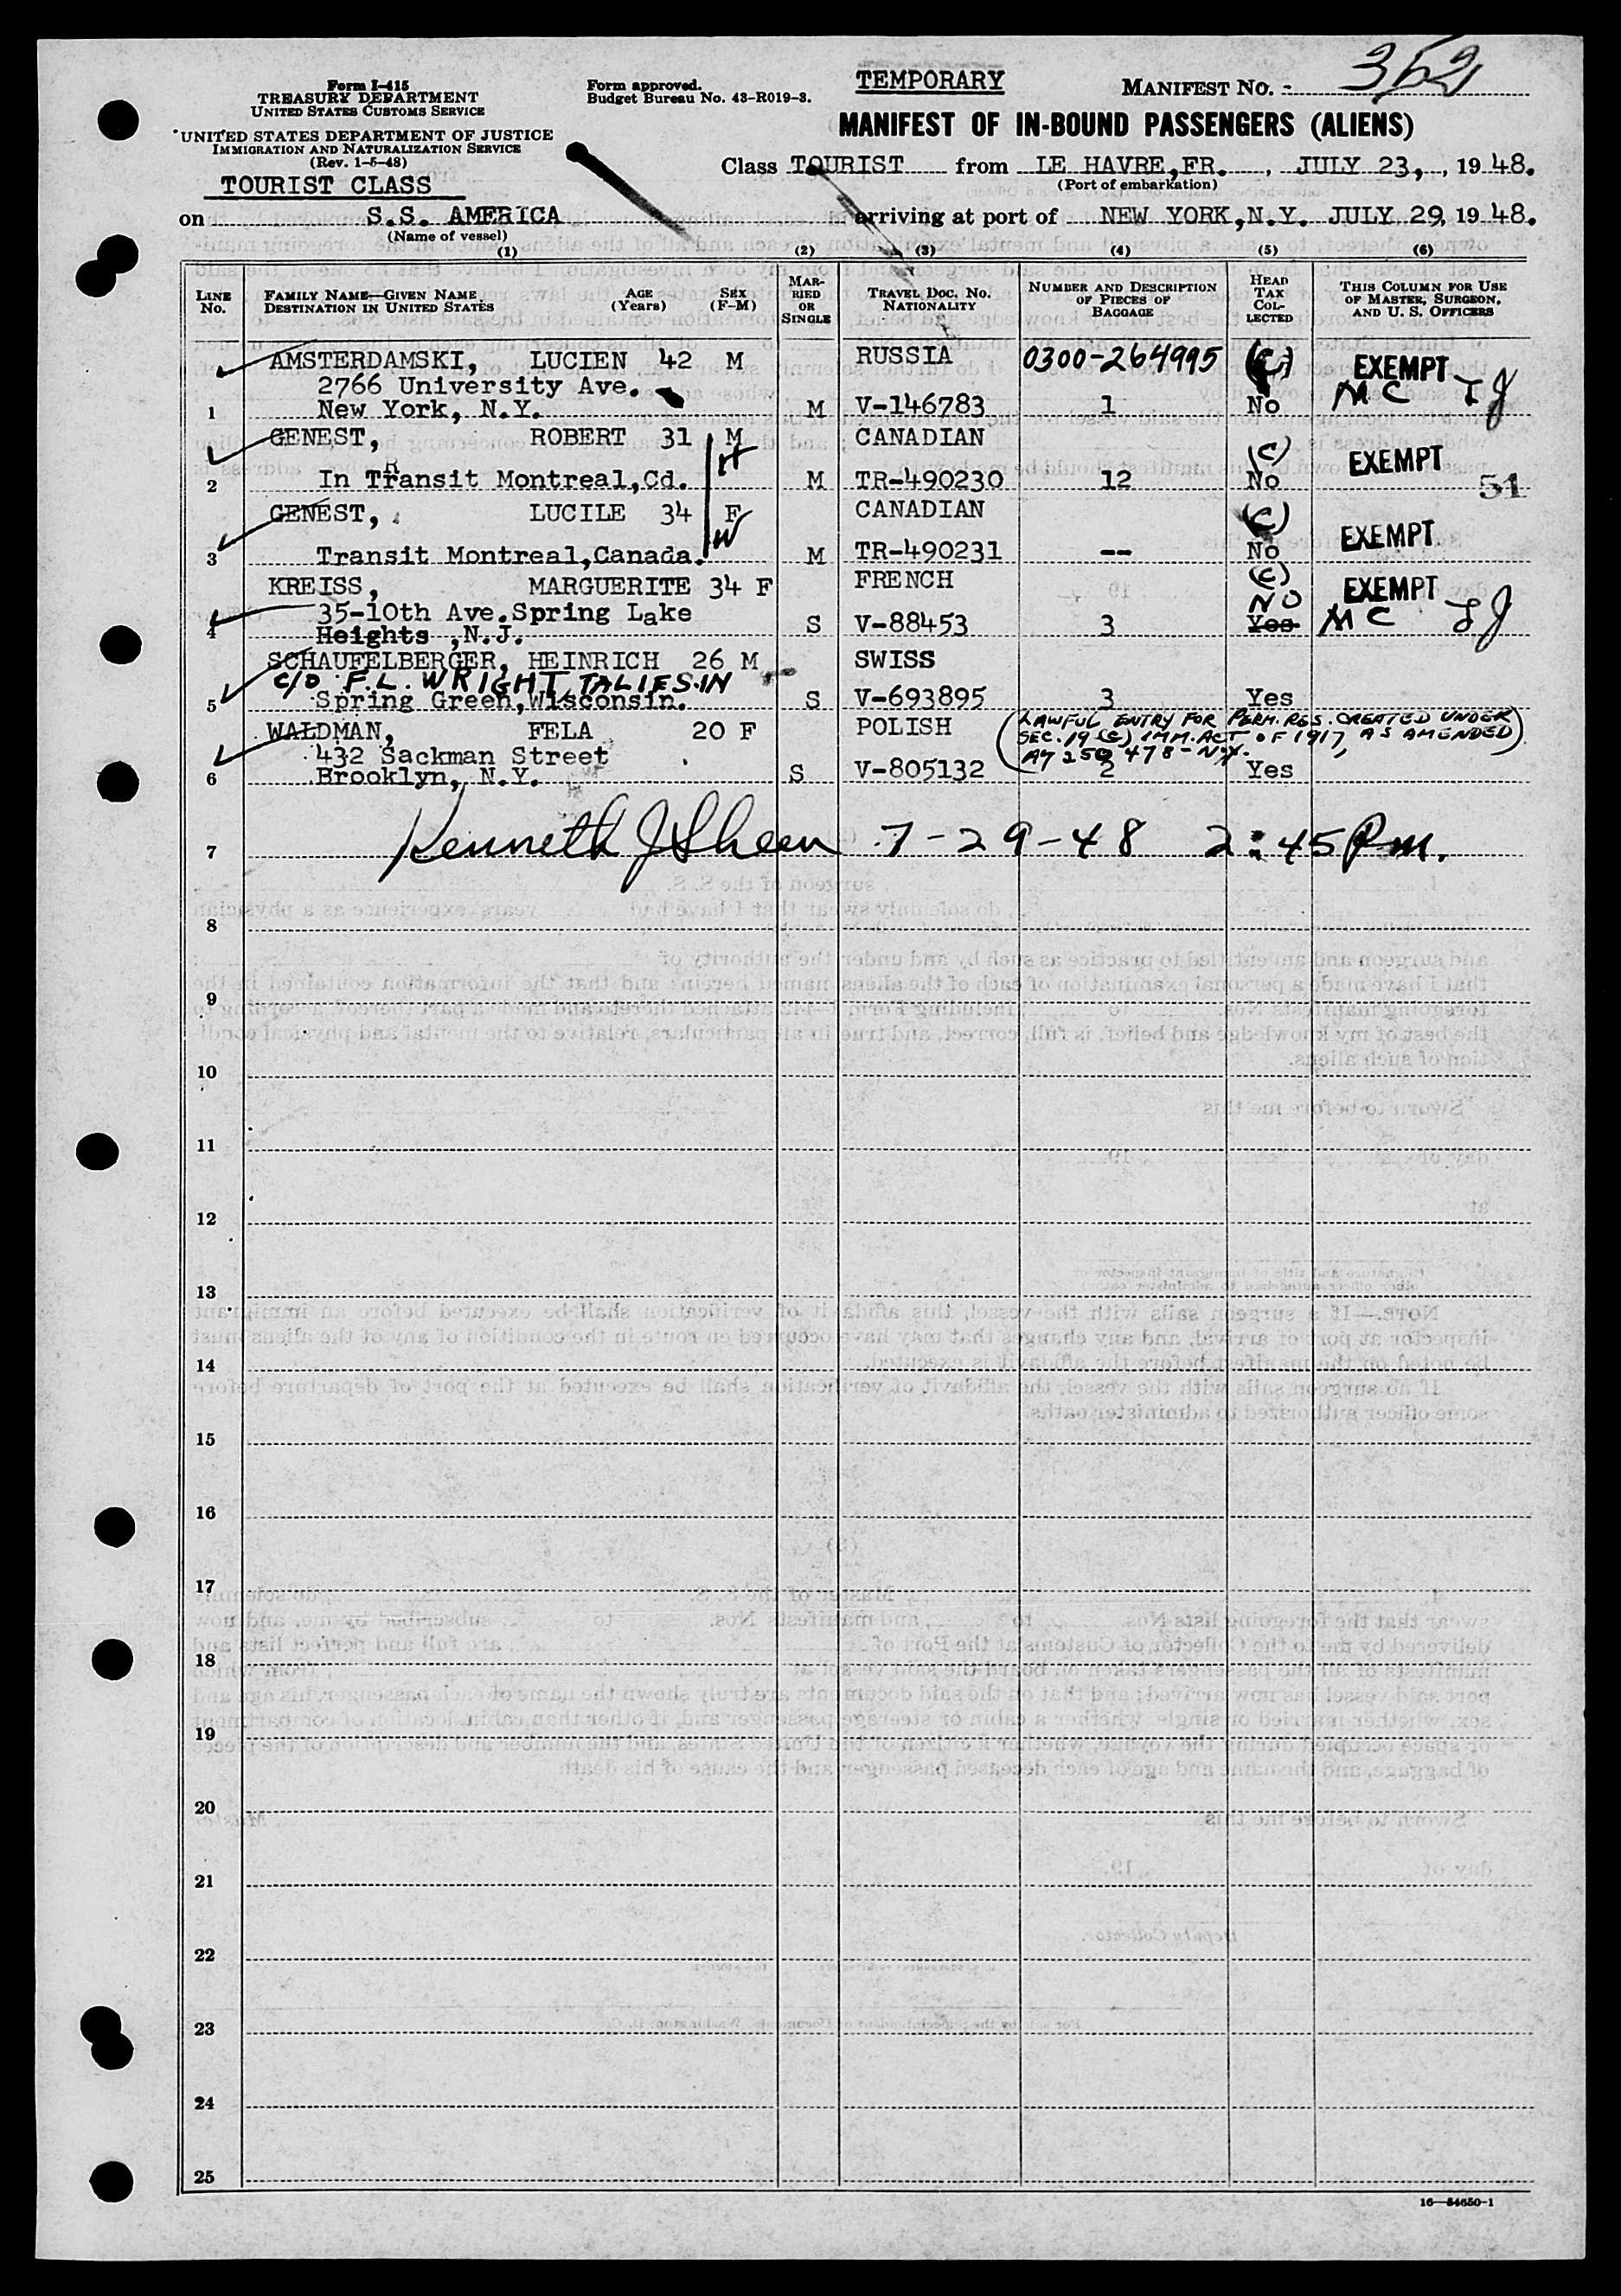 Form I-415
TREASURY DEPARTMENT
UNITED STATES CUSTOMS SERVICE
UNITED STATES DEPARTMENT OF JUSTICE
IMMIGRATION AND NATURALIZATION SERVICE
(Rev. 1-5-48)
TOURIST CLASS
Form approved.
Budget Bureau No. 43-R019-3.
TEMPORARY
MANIFEST NO. 352
MANIFEST OF IN-BOUND PASSENGERS (ALIENS)
Class TOURIST from LE HAVRE,FR., JULY 23, 1948.
(Port of embarkation)
on S.S. AMERICA arriving at port of NEW YORK,N.Y. JULY 29, 1948.
(Name of vessel)
(1) (2) (3) (4) (5) (6)
LINE NO. FAMILY NAME—GIVEN NAME DESTINATION IN UNITED STATES AGE (Years) SEX (F-M) MARRIED OR SINGLE TRAVEL DOC. NO. NATIONALITY NUMBER AND DESCRIPTION OF PIECES OF BAGGAGE HEAD TAX COLLECTED THIS COLUMN FOR USE OF MASTER, SURGEON, AND U. S. OFFICERS
AMSTERDAMSKI, LUCIEN 42 M RUSSIA 0300-264995 (C) EXEMPT
2766 University Ave. MC LJ
1 New York, N.Y. M V-146783 1 No
GENEST, ROBERT 31 M CANADIAN
H (C) EXEMPT
2 In TRansit Montreal,Cd. M TR-490230 12 No 51
GENEST, LUCILE 34 F CANADIAN (C)
W EXEMPT
3 Transit Montreal,Canada. M TR-490231 -- No
KREISS, MARGUERITE 34 F FRENCH (C) EXEMPT
35-10th Ave.Spring Lake NO
4 Heights ,N.J. S V-88453 3 Yes MC LJ
SCHAUFELBERGER, HEINRICH 26 M SWISS
C/O F.L. WRIGHT, TALIESIN
5 Spring Green,Wisconsin. S V-693895 3 Yes
WALDMAN, FELA 20 F POLISH (LAWFUL ENTRY FOR PERM. RES. CREATED UNDER
432 Sackman Street SEC. 19 (c) IMM. ACT OF 1917, AS AMENDED)
A7 250 478 - N.Y.
6 Brooklyn, N.Y. S V-805132 2 Yes
7 Kenneth J Sheen 7-29-48 2:45 Pm.
8
9
10
11
12
13
14
15
16
17
18
19
20
21
22
23
24
25
16—54650-1